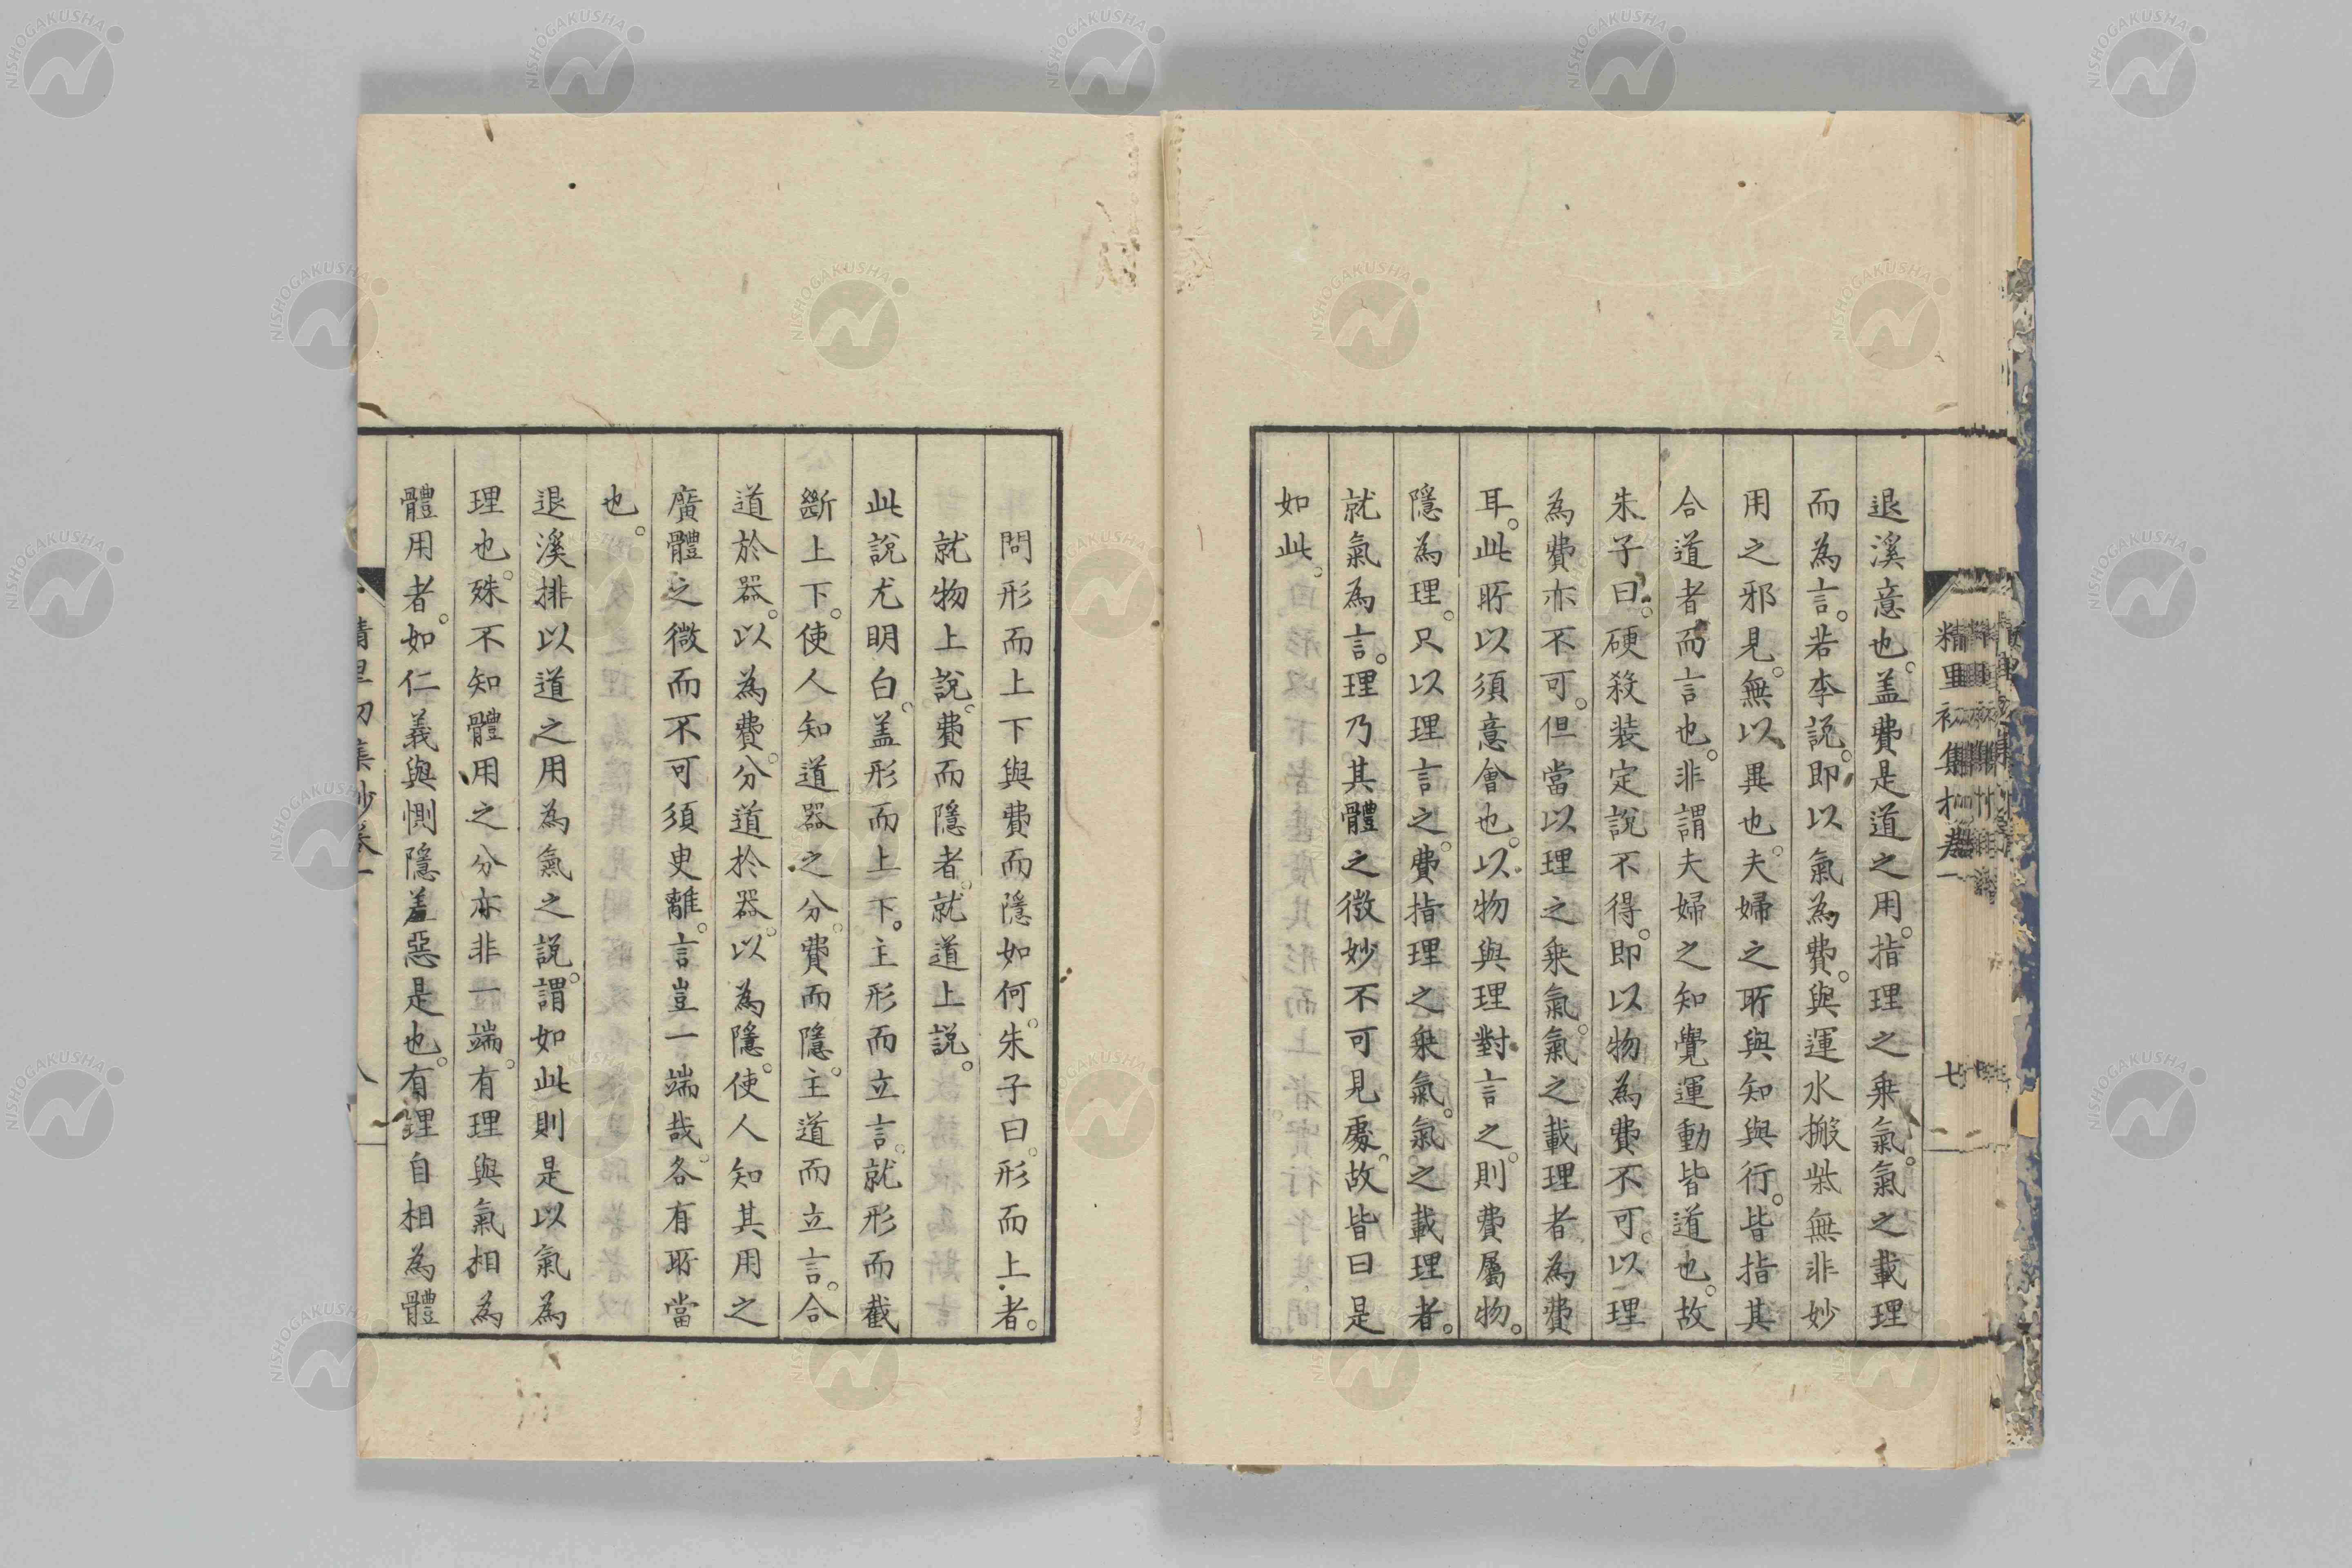 退溪意也。盖費是道之用。指理之乗氣。氣之載理
而為言。若李説。即以氣為費。與運水搬柴無非妙
用之邪見。無以異也。夫婦之所與知與行。皆指其
合道者而言也。非謂夫婦之知覺運動皆道也。故
朱子曰。硬殺装定説不得。即以物為費不可。以理
為費亦不可。但當以理之乗氣。氣之載理者為費
耳。此所以須意會也。以物與理對言之。則費屬物。
隱為理。只以理言之。費指理之乗氣。氣之載理者。
就氣為言。理乃其體之微妙不可見處。故皆曰是
如此。
精里初集抄卷一
七
問形而上下與費而隱如何。朱子曰。形而上者。
就物上說。費而隱者。就道上説。
此說尤明白。盖形而上下。主形而立言。就形而截
斷上下。使人知道器之分。費而隱。主道而立言。合
道於器。以為費。分道於器。以為隱。使人知其用之
廣體之微而不可須臾離。言豈一端哉。各有所當
也。
退溪排以道之用為氣之説。謂如此則是以氣為
理也。殊不知體用之分亦非一端。有理與氣相為
體用者。如仁義與惻隱羞惡是也。有理自相為體
精里初集抄卷一
八
NISHOGAKUSHA